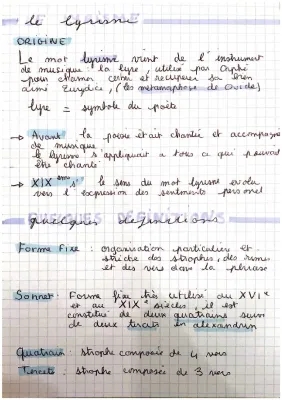 le lyrisme
ORIGINE
Le mot lyrisme vient de l'instrument
de musique la lyre, utilisé par Orphé
pour charmer et recuperer sa bien
aimé Eurydice, (les métamorphose de Ovide)
lyre = symbole du poète
→ Avant la poésie était chantée et accompagné
de musique
le lyrisme s'appliquait a tous ce qui pouvait
être chanté
→ XIX ème s' le sens du mot lyrisme evolu
vers l'expression des sentiments personel
QUELQUES DEFINITIONS
quelques définitions
Forme Fixe : organisation particulière et
stricte des strophes, des rimes
et des vers dans la phrase
Sonnet : Forme fixe très utilisé au XVIe
et au XIXe siècles, il est
constitué de deux quatrains suivi
de deux tercets en alexandrin
Quatrain : strophe composée de 4 vers
Tercets : strophe composée de 3 vers